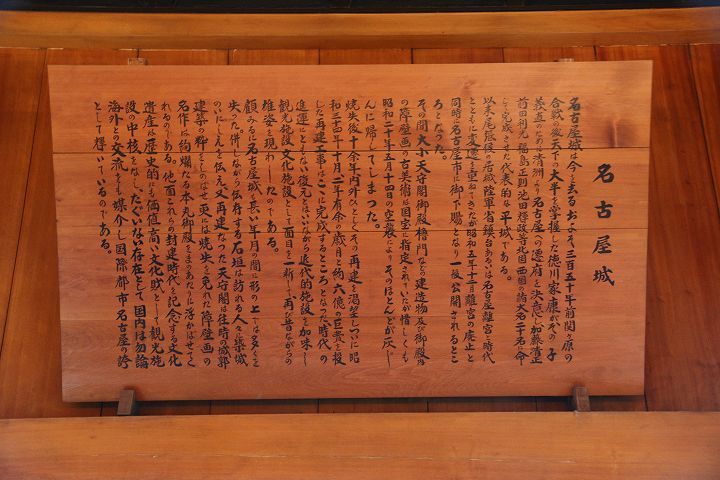 名古屋城
名古屋城は今を去るおよそ三百五十年前関ヶ原の
合戦の後天下の大半を掌握した徳川家康がその子
義直のため清洲より名古屋への遷府を決意し加藤清正
前田利光福島正則池田輝政等北国西国の諸大名二十名に命
じ完成させた代表的な平城である。
以来尾張徳川の居城陸軍省鎮台あるいは名古屋離宮と時代
とともに変遷を重ねてきたが昭和五年十二月離宮の廃止と
同時に名古屋市に御下賜となり一般公開されるとこ
ろとなった。
その間大小天守閣御殿櫓門などの建造物及び御殿内
の障壁画の古美術は国宝に指定されていたが惜しくも
昭和二十年五月十四日の空襲によりそのほとんどが灰じ
んに帰してしまった。
焼失後十余年内外ひとしくその再建を渇望しついに昭
和三十四年十月二年有余の歳月と約六億の巨費を投
した再建工事はここに完成するところとなった時代の
進運にともない復元とはいいながら近代的施設を加味し
観光施設文化施設として面目を一新して再び昔ながらの
雄姿を現わしたのである。
顧みるに名古屋城は長い年月の間に形の上では多くを
失った。併しながら伝存する石垣は訪れる人々に築城
のいにしえを伝え又再建なった天守閣は往時の城郭
建築の粋をしのばせ更には焼失を免れた障壁画の
名作は絢爛たる本丸御殿をまのあたりに浮かばせてく
れるのである。他面これらの封建時代を記念する文化
遺産は歴史的にも価値高い文化財として観光施
設の中核をなしたぐいない存在として国内は勿論
海外との交流をも媒介し国際都市名古屋の誇
として輝いているのである。